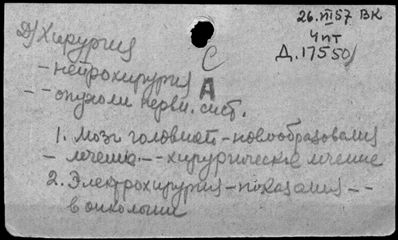 26.VII57 ВК
Чпт
Д.17550/
Д) Хирургия
С
- нейрохирургия
А
- - опухоли нервн. сист.
1. Мозг головной - новообразования
- лечение - - хирургическое лечение
2. Электрохирургия - показания - -
в онкологии